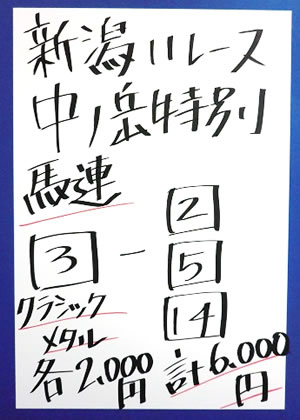 新潟11レース
中ノ岳特別
馬連
3 - 2
5
14
クラシック
メタル
各2,000円
計6,000円